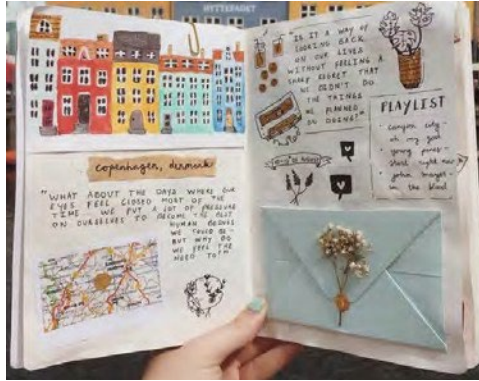 HYTTEFADET
copenhagen, denmark
"WHAT ABOUT THE DAYS WHERE OUR
EYES FEEL CLOSED MOST OF THE
TIME. WE PUT A LOT OF PRESSURE
ON OURSELVES TO BECOME THE BEST
HUMAN BEINGS
WE COULD BE -
BUT WHY DO
WE FEEL THE
NEED TO?"
"IS IT A WAY OF
LOOKING BACK
ON OUR LIVES
WITHOUT FEELING A
SHARP REGRET THAT
WE DIDN'T DO
THE THINGS
WE PLANNED
ON DOING?"
PLAYLIST
canyon city -
oh my god
young pines -
start right now
john mayer -
in the blood